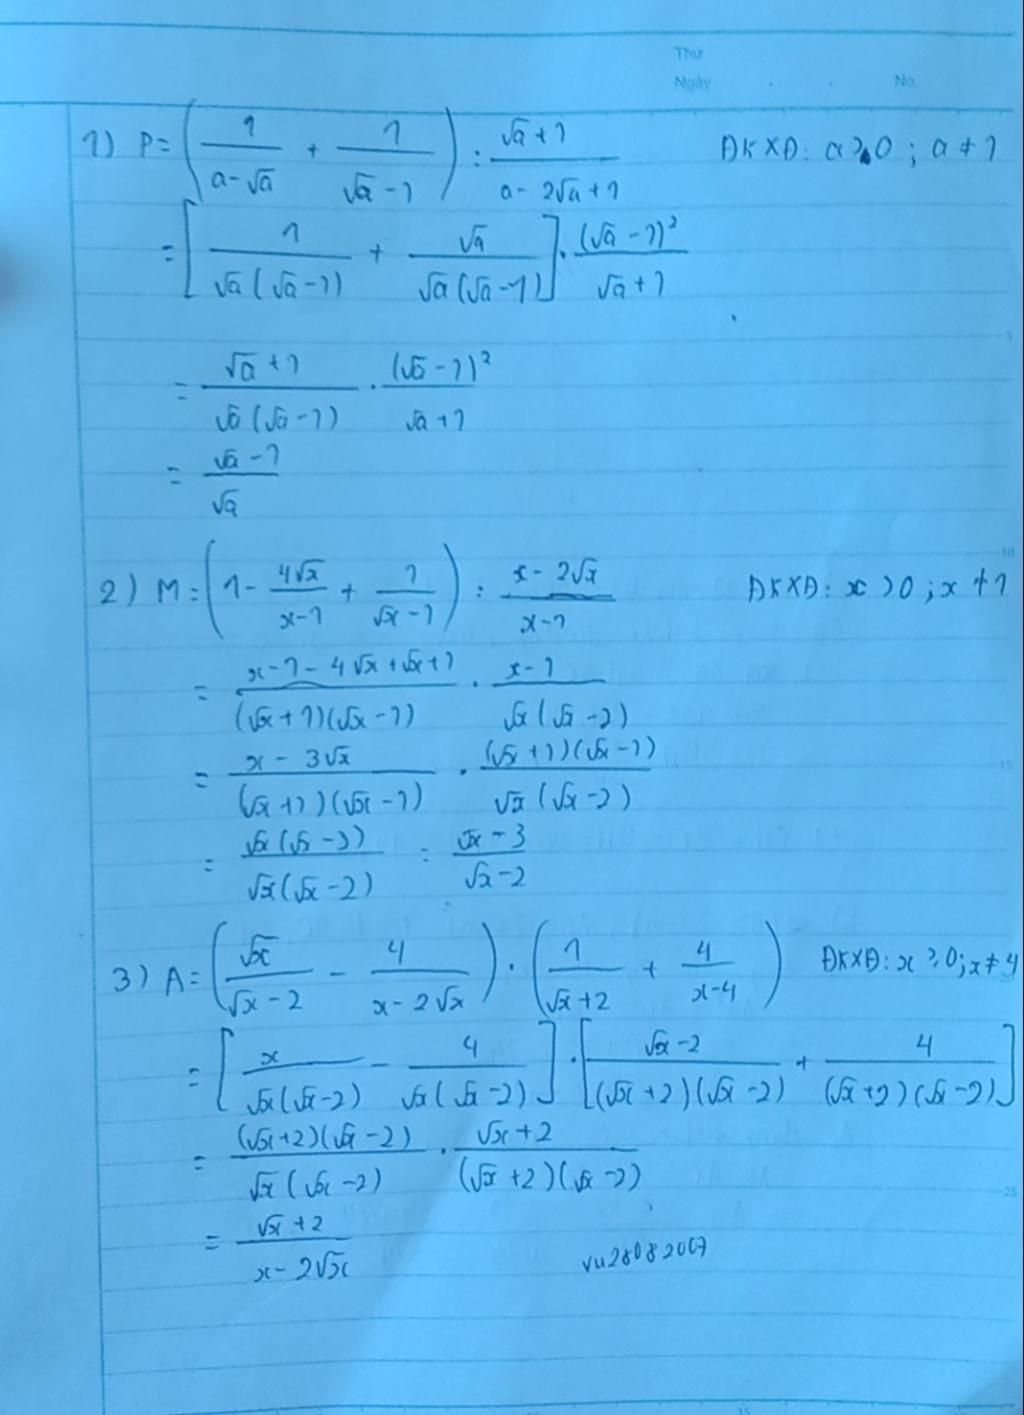 Thứ
Ngày . . No.
1) P = (1/(a-√a) + 1/(√a-1)) : (√a+1)/(a-2√a+1) ĐKXĐ: a > 0 ; a ≠ 1
= [1/(√a(√a-1)) + √a/(√a(√a-1))] . (√a-1)²/(√a+1)
= (√a+1)/(√a(√a-1)) . (√a-1)²/(√a+1)
= (√a-1)/√a
2) M = (1 - 4√x/(x-1) + 1/(√x-1)) : (x-2√x)/(x-1) ĐKXĐ: x > 0 ; x ≠ 1
= (x-1-4√x+√x+1)/((√x+1)(√x-1)) . (x-1)/(√x(√x-2))
= (x-3√x)/((√x+1)(√x-1)) . ((√x+1)(√x-1))/(√x(√x-2))
= (√x(√x-3))/(√x(√x-2)) = (√x-3)/(√x-2)
3) A = (√x/(√x-2) - 4/(x-2√x)) . (1/(√x+2) + 4/(x-4)) ĐKXĐ: x ≥ 0 ; x ≠ 4
= [x/(√x(√x-2)) - 4/(√x(√x-2))] . [(√x-2)/((√x+2)(√x-2)) + 4/((√x+2)(√x-2))]
= ((√x+2)(√x-2))/(√x(√x-2)) . (√x+2)/((√x+2)(√x-2))
= (√x+2)/(x-2√x)
vu28082007